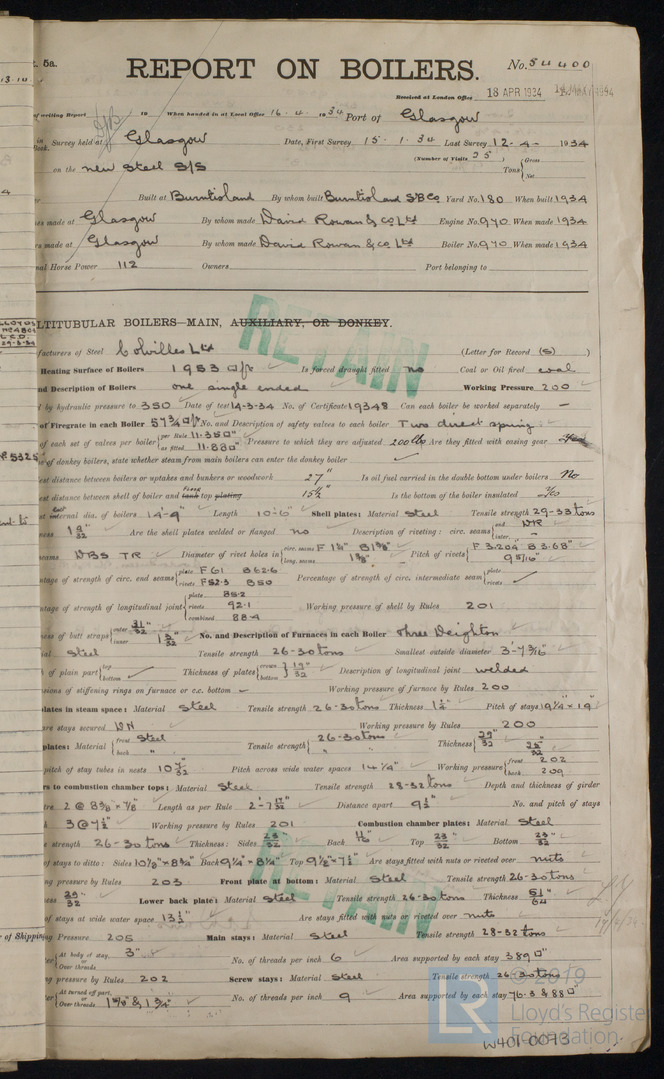 5a.
REPORT ON BOILERS.
No. 54400
Received at London Office 18 APR 1934
of writing Report 19 When handed in at Local Office 16 - 4 - 1934 Port of Glasgow
Survey held at Glasgow Date, First Survey 15 - 1 - 34 Last Survey 12 - 4 - 1934
(Number of Visits 25) Gross
on the new steel S/S Tons
Net
Built at Burntisland By whom built Burntisland S.B. Co Yard No. 180 When built 1934
made at Glasgow By whom made David Rowan & Co Ltd Engine No. 970 When made 1934
made at Glasgow By whom made David Rowan & Co Ltd Boiler No. 970 When made 1934
nal Horse Power 112 Owners Port belonging to
LTITUBULAR BOILERS—MAIN, AUXILIARY, OR DONKEY.
RETAIN
facturers of Steel Colvilles Ltd (Letter for Record (S) )
Heating Surface of Boilers 1953 □ft Is forced draught fitted no Coal or Oil fired coal
nd Description of Boilers one single ended Working Pressure 200
d by hydraulic pressure to 350 Date of test 14-3-34 No. of Certificate 19348 Can each boiler be worked separately —
of Firegrate in each Boiler 57¾ □ft No. and Description of safety valves to each boiler Two direct spring
of each set of valves per boiler per Rule 11.350" as fitted 11.880" Pressure to which they are adjusted 200 lbs Are they fitted with easing gear Yes
of donkey boilers, state whether steam from main boilers can enter the donkey boiler
est distance between boilers or uptakes and bunkers or woodwork 27" Is oil fuel carried in the double bottom under boilers No
est distance between shell of boiler and tank top plating Floor 15½" Is the bottom of the boiler insulated Yes
internal dia. of boilers 14'-9" Length 10'-6" Shell plates: Material Steel Tensile strength 29-33 tons
1 9/32 Are the shell plates welded or flanged no Description of riveting: circ. seams end DR inter. —
seams DBS TR Diameter of rivet holes in circ. seams long. seams Pitch of rivets F 3.204" B 3.68" 9 5/16"
ntage of strength of circ. end seams plate F 61 B 62.6 rivets F 52.3 B 50 Percentage of strength of circ. intermediate seam plate rivets
ntage of strength of longitudinal joint plate 85.2 rivets 92.1 combined 88.4 Working pressure of shell by Rules 201
ss of butt straps outer 31/32 inner 1 3/32 No. and Description of Furnaces in each Boiler Three Deighton
ial Steel Tensile strength 26-30 tons Smallest outside diameter 3'-7 3/16"
of plain part top bottom Thickness of plates crown bottom 19/32 Description of longitudinal joint welded
sions of stiffening rings on furnace or c.c. bottom — Working pressure of furnace by Rules 200
plates in steam space: Material Steel Tensile strength 26-30 tons Thickness 1¼" Pitch of stays 19¼" x 19"
are stays secured DN Working pressure by Rules 200
plates: Material front Steel back " Tensile strength 26-30 tons " " Thickness 29/32 25/32
pitch of stay tubes in nests 10 7/32 Pitch across wide water spaces 14¼" Working pressure front 202 back 209
rs to combustion chamber tops: Material Steel Tensile strength 28-32 tons Depth and thickness of girder
tre 2 @ 8⅜" x ⅞" Length as per Rule 2'-7 17/32" Distance apart 9½" No. and pitch of stays
3 @ 7½" Working pressure by Rules 201 Combustion chamber plates: Material Steel
e strength 26-30 tons Thickness: Sides 23/32 Back Top 23/32 Bottom 23/32
of stays to ditto: Sides 10⅛" x 8¾" Back 9¼" x 8¼" Top 9½" x 7½" Are stays fitted with nuts or riveted over nuts
ng pressure by Rules 203 Front plate at bottom: Material Steel Tensile strength 26-30 tons
29/32 Lower back plate: Material Steel Tensile strength 26-30 tons Thickness 51/64
RETAIN
of stays at wide water space 13½" Are stays fitted with nuts or riveted over nuts
Pressure 205 Main stays: Material Steel Tensile strength 28-32 tons
At body of stay, or Over threads 3" No. of threads per inch 6 Area supported by each stay 389 □"
ng pressure by Rules 202 Screw stays: Material Steel Tensile strength 26-30 tons
At turned off part, or Over threads 1⅝" & 1¾" No. of threads per inch 9 Area supported by each stay 76.3 & 88 □"
© 2019
LR Lloyd's Register
Foundation
W401-0073